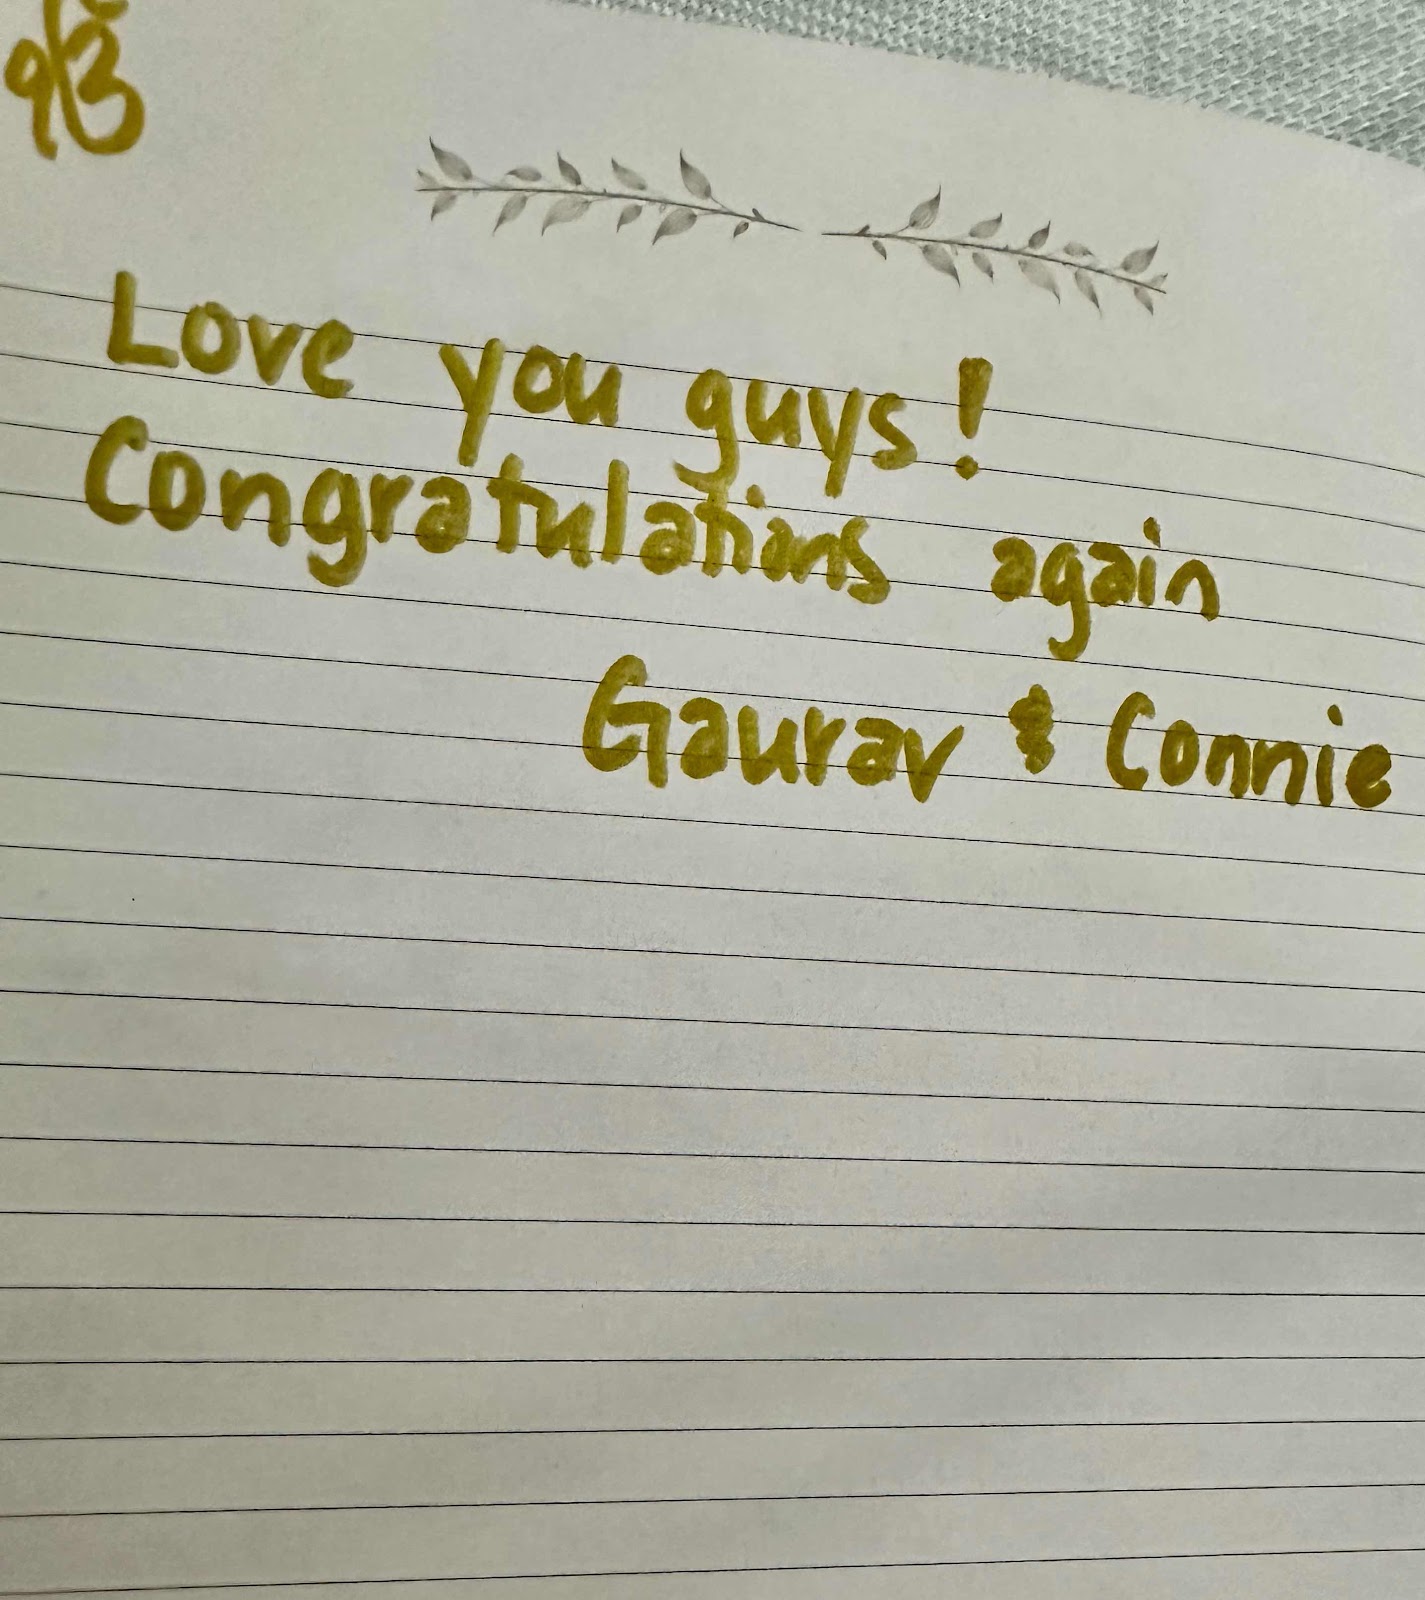 Love you guys!
Congratulations again
Gaurav & Connie